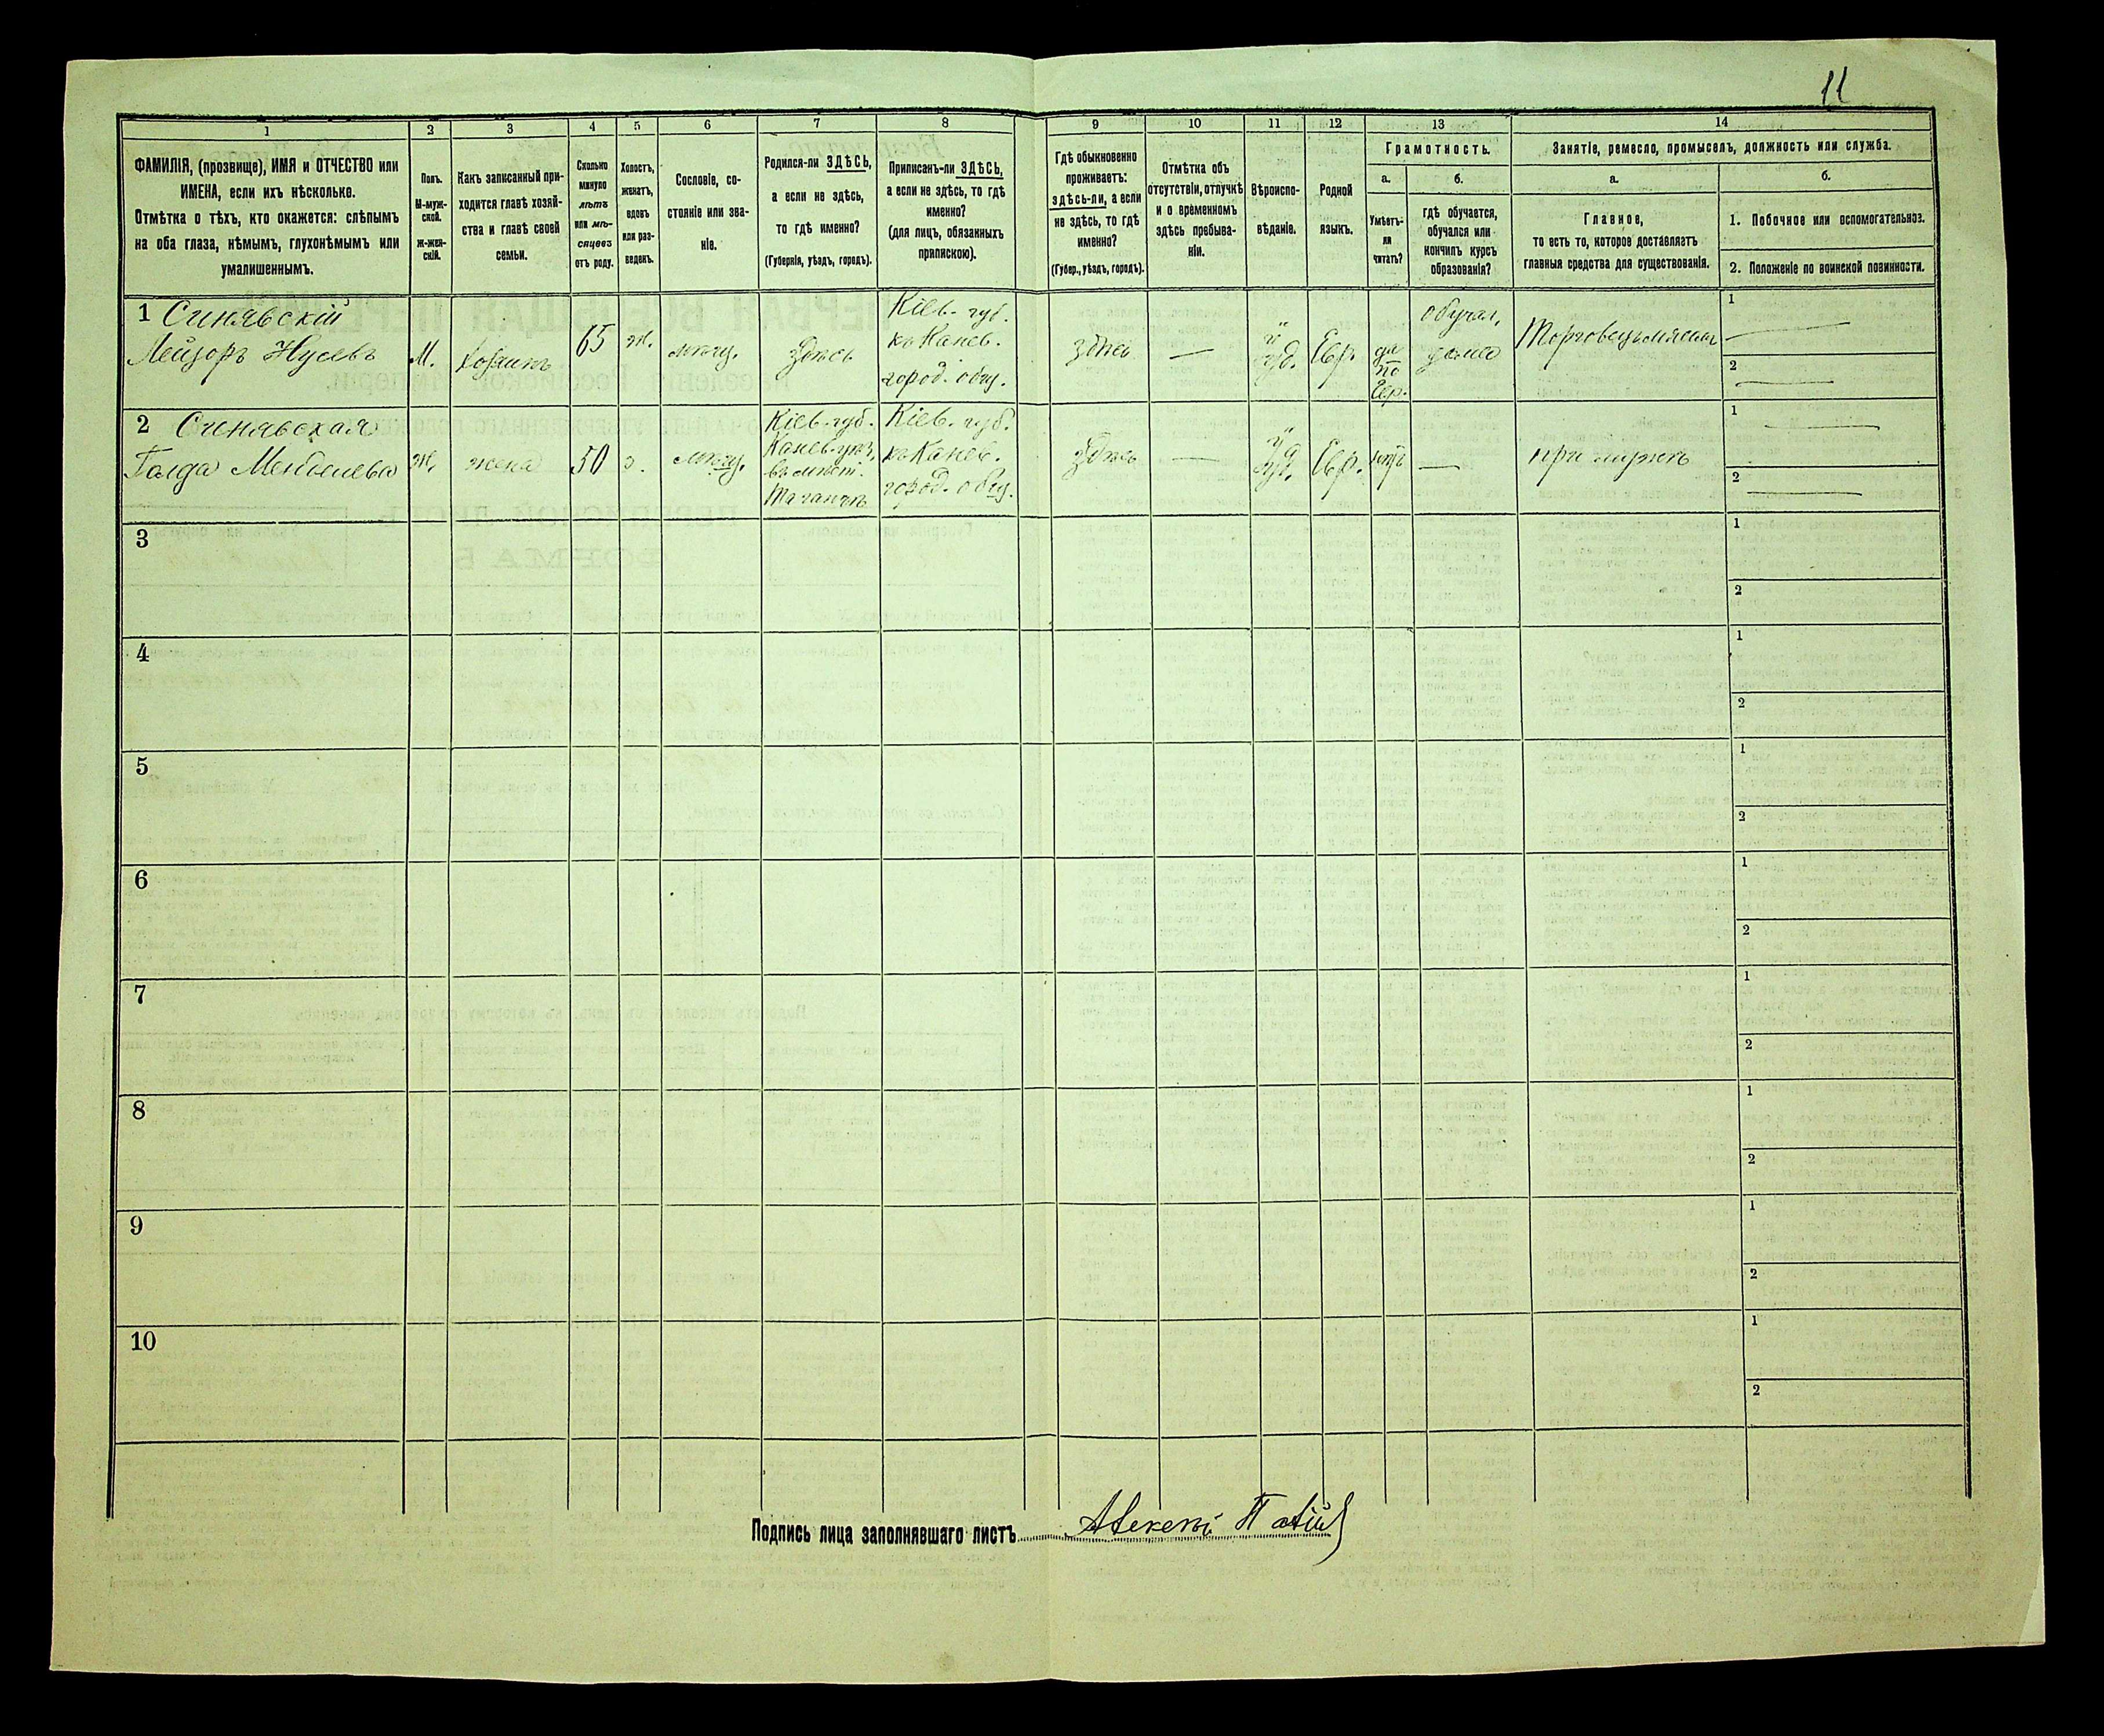 11
1
2
3
4
5
6
7
8
9
10
11
12
13
14
ФАМИЛІЯ, (прозвище), ИМЯ и ОТЧЕСТВО или
ИМЕНА, если ихъ нѣсколько.
Отмѣтка о тѣхъ, кто окажется: слѣпымъ
на оба глаза, нѣмымъ, глухонѣмымъ или
умалишеннымъ.
Полъ.
М-муж-
ской.
ж-жен-
скій.
Какъ записанный при-
ходится главѣ хозяй-
ства и главѣ своей
семьи.
Сколько
минуло
лѣтъ
или мѣ-
сяцевъ
отъ роду.
Холостъ,
женатъ,
вдовъ
или раз-
веденъ.
Сословіе, со-
стояніе или зва-
ніе.
Родился-ли ЗДѢСЬ,
а если не здѣсь,
то гдѣ именно?
(Губернія, уѣздъ, городъ).
Приписанъ-ли ЗДѢСЬ,
а если не здѣсь, то гдѣ
именно?
(для лицъ, обязанныхъ
припискою).
Гдѣ обыкновенно
проживаетъ:
здѣсь-ли, а если
не здѣсь, то гдѣ
именно?
(Губер., уѣздъ, городъ).
Отмѣтка объ
отсутствіи, отлучкѣ
и о временномъ
здѣсь пребыва-
ніи.
Вѣроиспо-
вѣданіе.
Родной
языкъ.
Грамотность.
а.
Умѣетъ-
ли
читать?
б.
гдѣ обучается,
обучался или
кончилъ курсъ
образованія?
Занятіе, ремесло, промыселъ, должность или служба.
а.
Главное,
то есть то, которое доставляетъ
главныя средства для существованія.
б.
1. Побочное или вспомогательное.
2. Положеніе по воинской повинности.
1 Синявскій
Лейзоръ Нусевъ
М.
хозяинъ
65
ж.
мѣщ.
здѣсь
Кіев. губ.
къ Канев.
город. общ.
здѣсь
—
Іуд.
Евр.
да
по
Евр.
обучал.
дома
Торговецъ мясом
1 —
2 —
2 Синявская
Голда Менделева
ж.
жена
50
з.
мѣщ.
Кіев. губ.
Канев. уѣз.
въ мѣст.
Таганчѣ
Кіев. губ.
къ Канев.
город. общ.
здѣсь
—
Іуд.
Евр.
нѣтъ
—
при мужѣ
1 —
2 —
3
1
2
4
1
2
5
1
2
6
1
2
7
1
2
8
1
2
9
1
2
10
1
2
Подпись лица заполнявшаго листъ